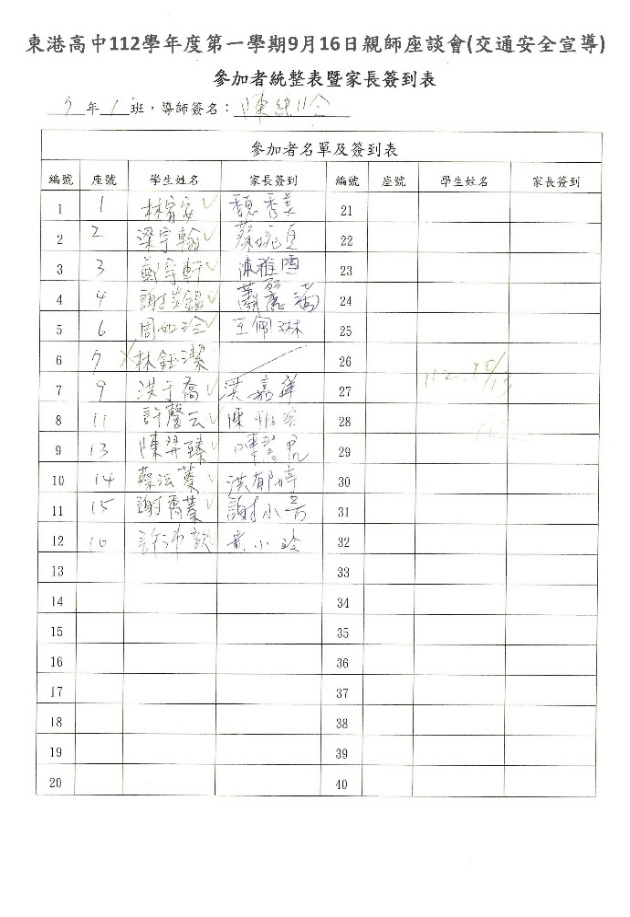 東港高中112學年度第一學期9月16日親師座談會(交通安全宣導)
參加者統整表暨家長簽到表
年 1 班，導師簽名：陳
參加者名單及簽到表
編號 座號 學生姓名 家長簽到 編號 座號 學生姓名 家長簽到
1 1 林宥安 ✓ 魏秀美 21
2 2 梁宇翰 ✓ 蔡 貞 22
3 3 鄭宇軒 ✓ 陳雅 23
4 4 謝 ✓ 蕭麗 24
5 6 周 ✓ 王佩琳 25
6 7 ✓ 林鈺潔 26
7 9 洪于喬 ✓ 洪嘉 27
8 11 許馨云 ✓ 陳 28
9 13 陳羿臻 ✓ 陳 29
10 14 蔡 蓁 ✓ 洪郁婷 30
11 15 謝喬蓁 ✓ 謝小芳 31
12 10 許沛歆 ✓ 黃小玲 32
13 33
14 34
15 35
16 36
17 37
18 38
19 39
20 40